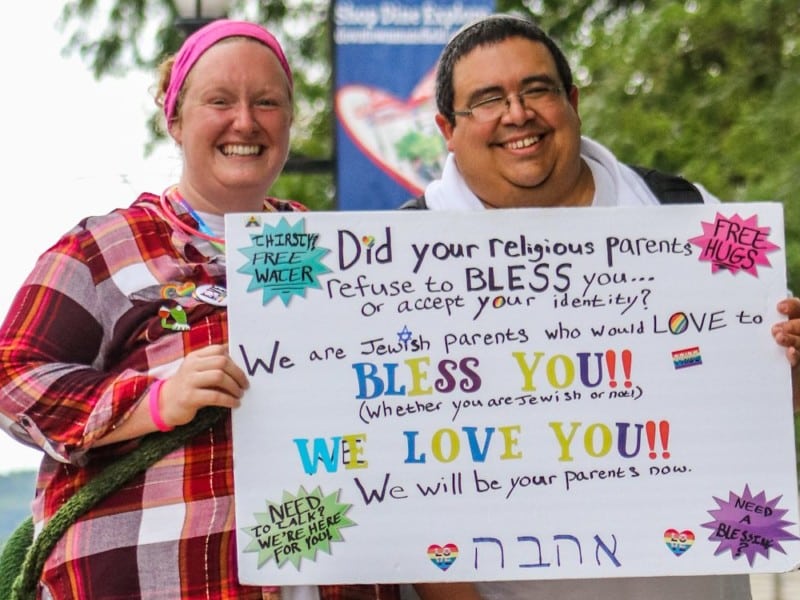 Shop Dine Explore
THIRSTY?
FREE
WATER
Did your religious parents
refuse to BLESS you...
or accept your identity?
FREE
HUGS
We are Jewish parents who would LOVE to
BLESS YOU!!
(Whether you are Jewish or not!)
WE LOVE YOU!!
We will be your parents now.
NEED
TO TALK?
WE'RE HERE
FOR YOU!
אהבה
NEED
A
BLESSING
?